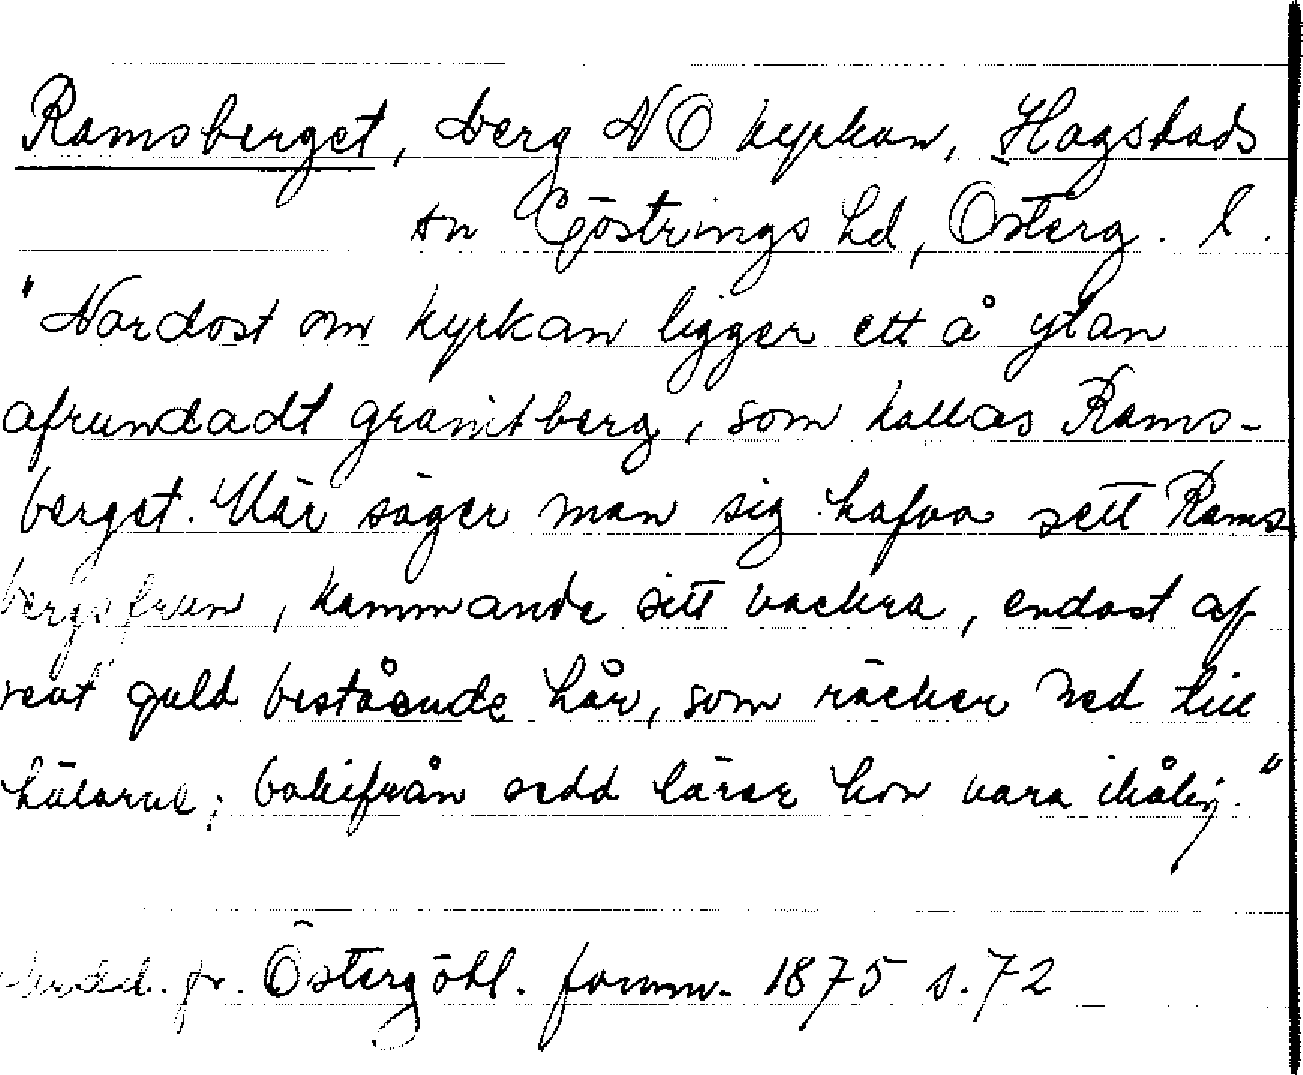 Ramsberget, berg NO kyrkan, Hagstads
sn Göstrings hd, Österg. l.
"Nordost om kyrkan ligger ett å ytan
afrundadt granitberg, som kallas Rams-
berget. Här säger man sig hafva sett Rams
bergsfrun, kammande sitt vackra, endast af
rent guld bestående hår, som räcker ned till
hälarne; bakifrån sedd lärer hon vara ihålig."
Medd. fr. Östergötl. fornm. 1875 s. 72